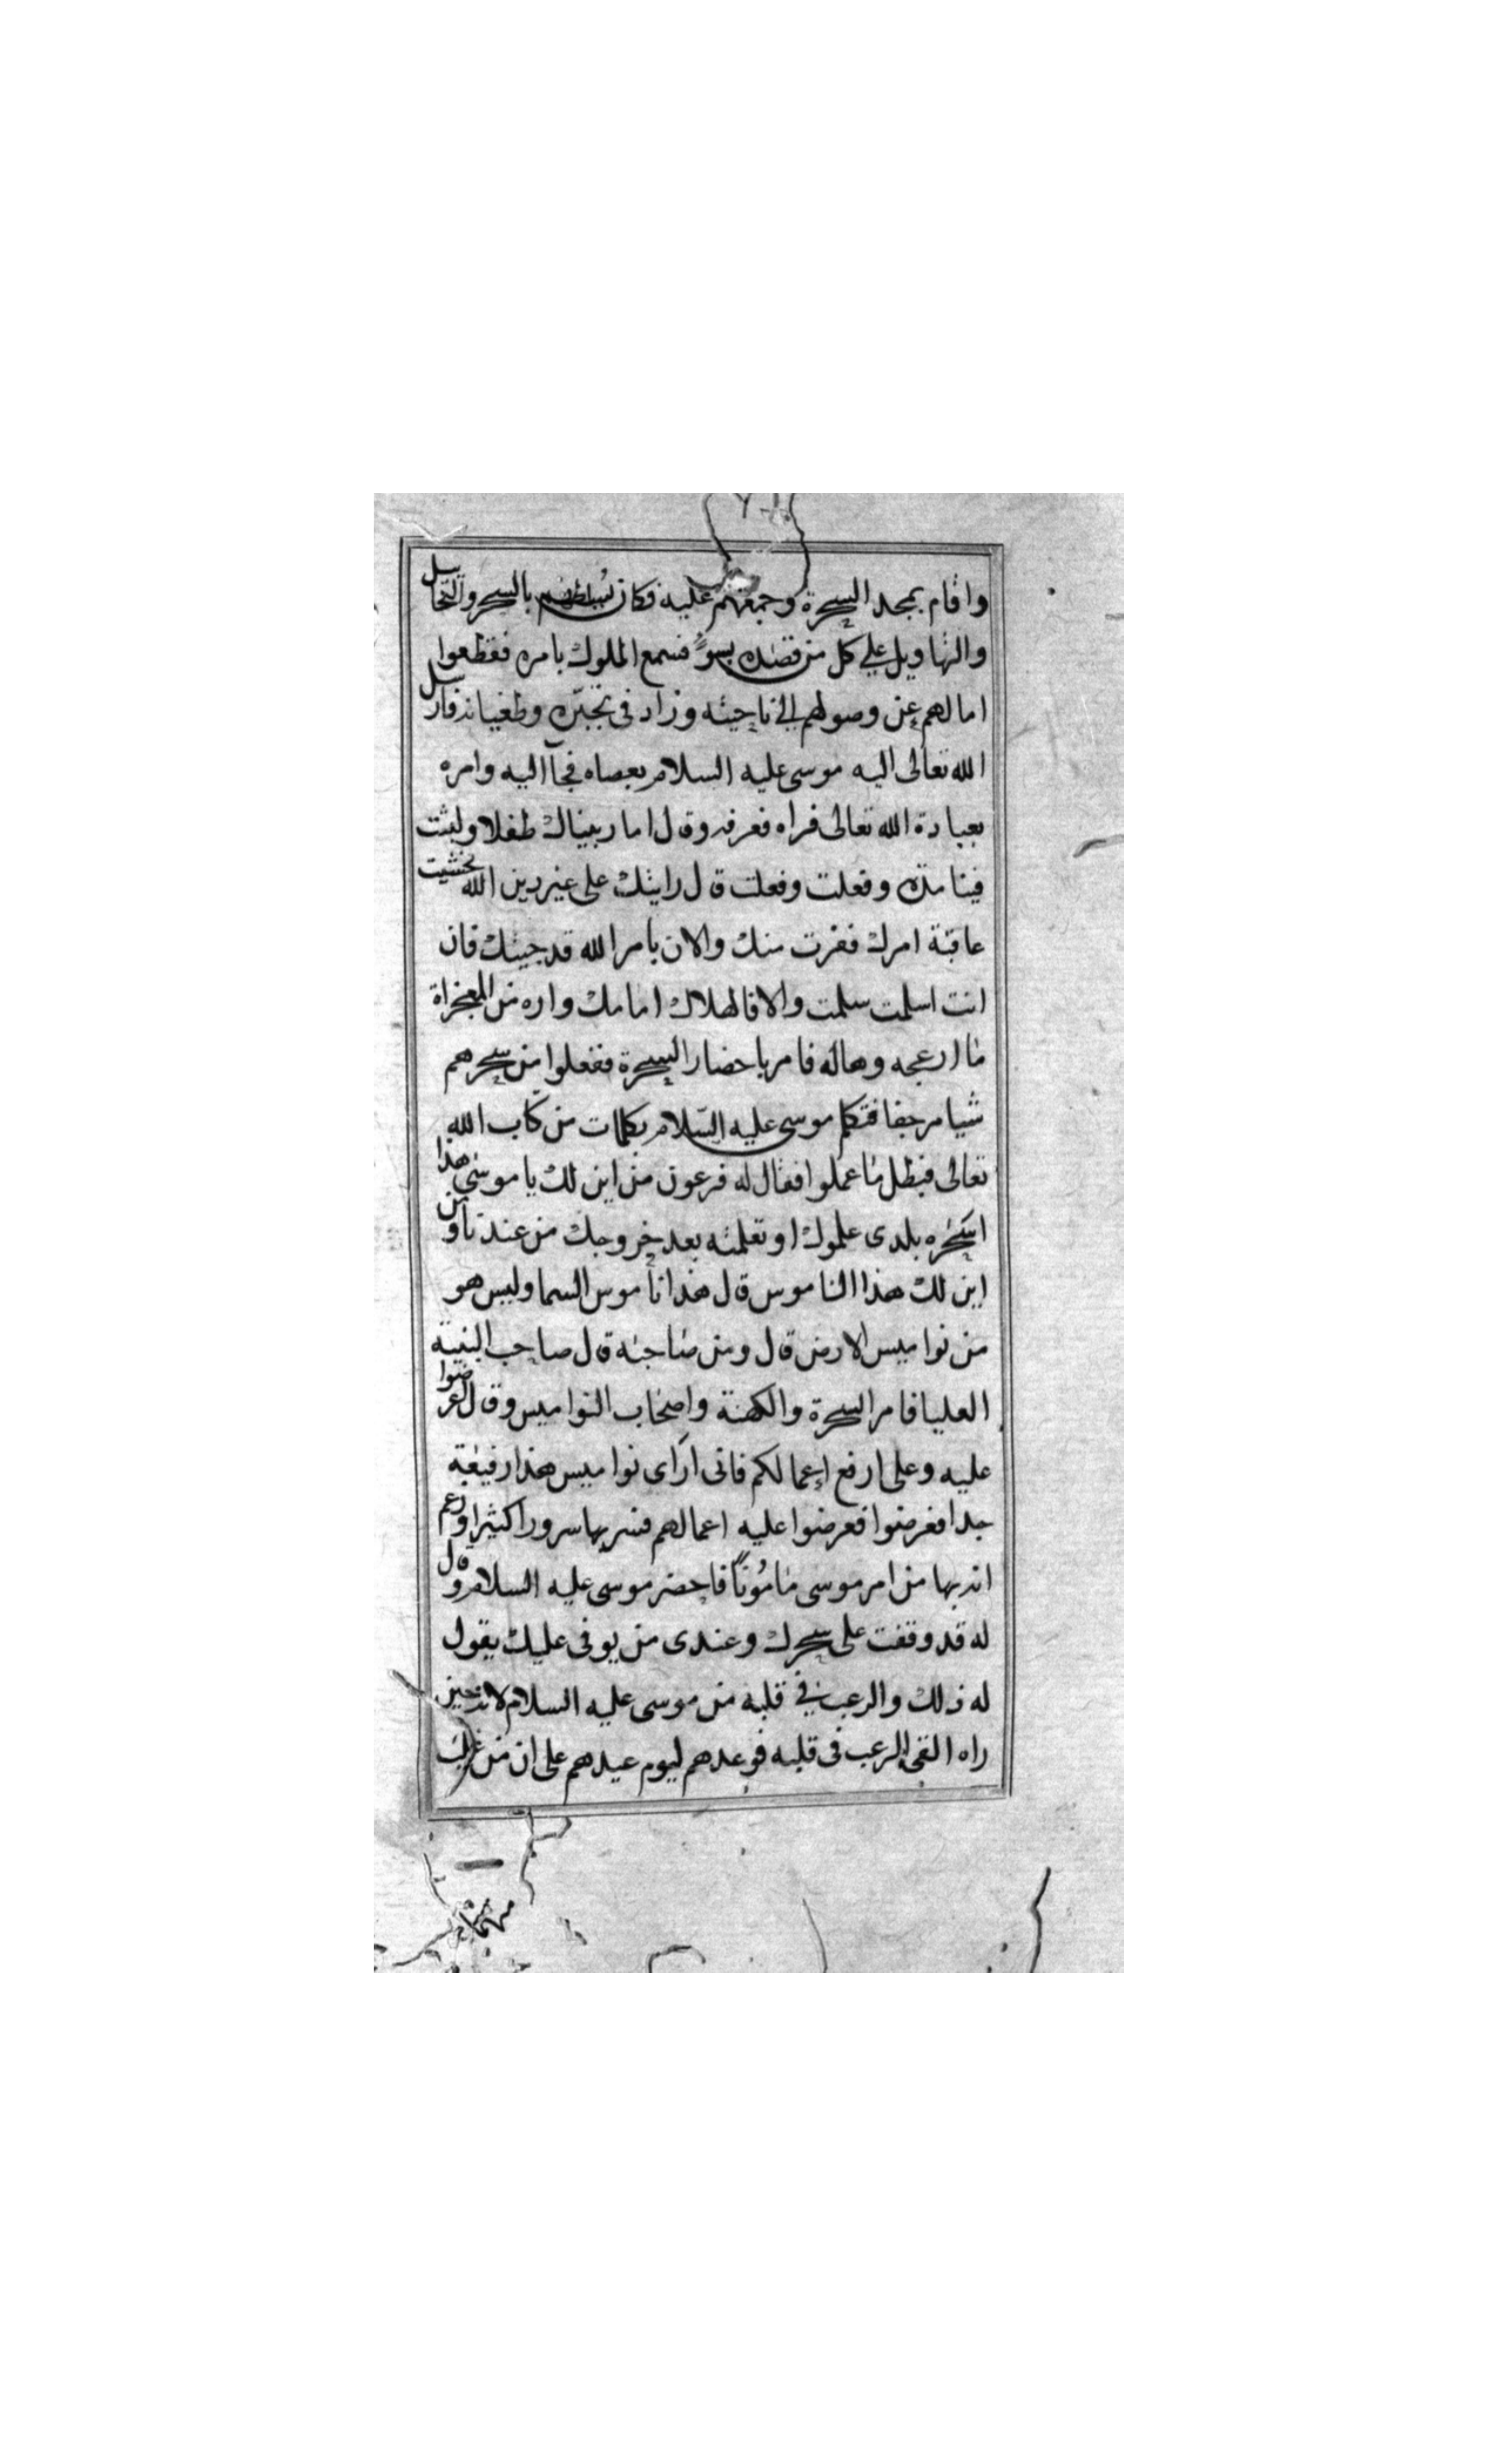 واقام بمجد السحرة وجمعهم عليه فكان يسلطهم بالسحر والتخاييل
والتهاويل علي كل من قصده بسوء فسمع الملوك بامره فقطعوا
امالهم عن وصولهم الي ناحيته وزاد في تجبره وطغيانه فارسل
الله تعالى اليه موسى عليه السلام بعصاه فجآ اليه وامره
بعبادة الله تعالى فراه فعرفه وقال اما ربيناك طفلا ولبثت
فينا مدة وفعلت وفعلت قال رايتك على غير دين الله فخشيت
عاقبة امرك ففرت منك والان بامر الله قد جيتك فان
انت اسلمت سلمت والا فالهلاك امامك واره من المعجزاة
ما ازعجه وهاله فامر باحضار السحرة ففعلوا من سحرهم
شيا مرجفا فتكلم موسى عليه السلام بكلمات من كتاب الله
تعالى فبطل ما عملوا فقال له فرعون من اين لك يا موسى هذا
اسحره بلدى علموك او تعلمته بعد خروجك من عندنا ومن
اين لك هذا الناموس قال هذا ناموس السما وليس هو
من نواميس الارض قال ومن صاحبه قال صاحب البنية
العليا فامر السحرة والكهنة واصحاب النواميس وقال اعرضوا
عليه وعلى ارفع اعمالكم فانى ارى نواميس هذا رفيعة
جدا فعرضوا فعرضوا عليه اعمالهم فسر بها سرورا كثيرا وزعم
انه بها من امر موسى مامونًا فاحضر موسى عليه السلام وقال
له قد وقفت على سحرك وعندى من يوفى عليك يقول
له ذلك والرعب في قلبه من موسى عليه السلام لانه حين
راه القى الرعب فى قلبه فوعدهم ليوم عيدهم على ان من غلب